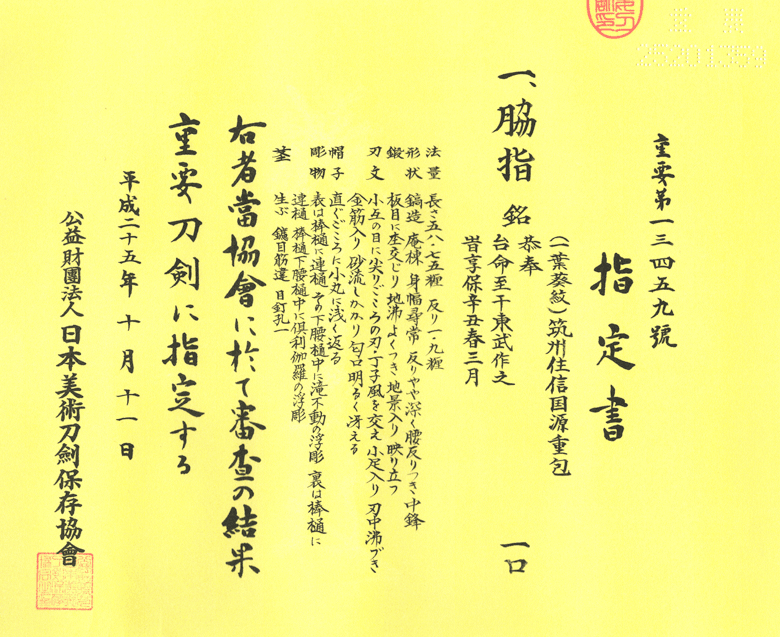 重要第一三四五九號
指定書
(一葉葵紋)筑州住信国源重包
一、脇指 銘 恭奉 一口
台命至于東武作之
旹享保辛丑春三月
法量 長さ五八・七五糎 反り一・九糎
形状 鎬造 庵棟 身幅尋常 反りやや深く腰反りつき中鋒
鍛 板目に杢交じり 地沸よくつき地景入り 映り立つ
刃文 小互の目に尖りごころの刃・丁子風を交え 小足入り 刃中沸づき
金筋入り 砂流しかかり 匂口明るく冴える
帽子 直ぐごころに小丸に浅く返る
彫物 表は棒樋に連樋 その下腰樋中に滝不動の浮彫 裏は棒樋に
連樋 棒樋下腰樋中に倶利伽羅の浮彫
茎 生ぶ 鑢目筋違 目釘孔一
右者當協會に於て審査の結果
重要刀剣に指定する
平成二十五年十月十一日
公益財團法人日本美術刀劍保存協會